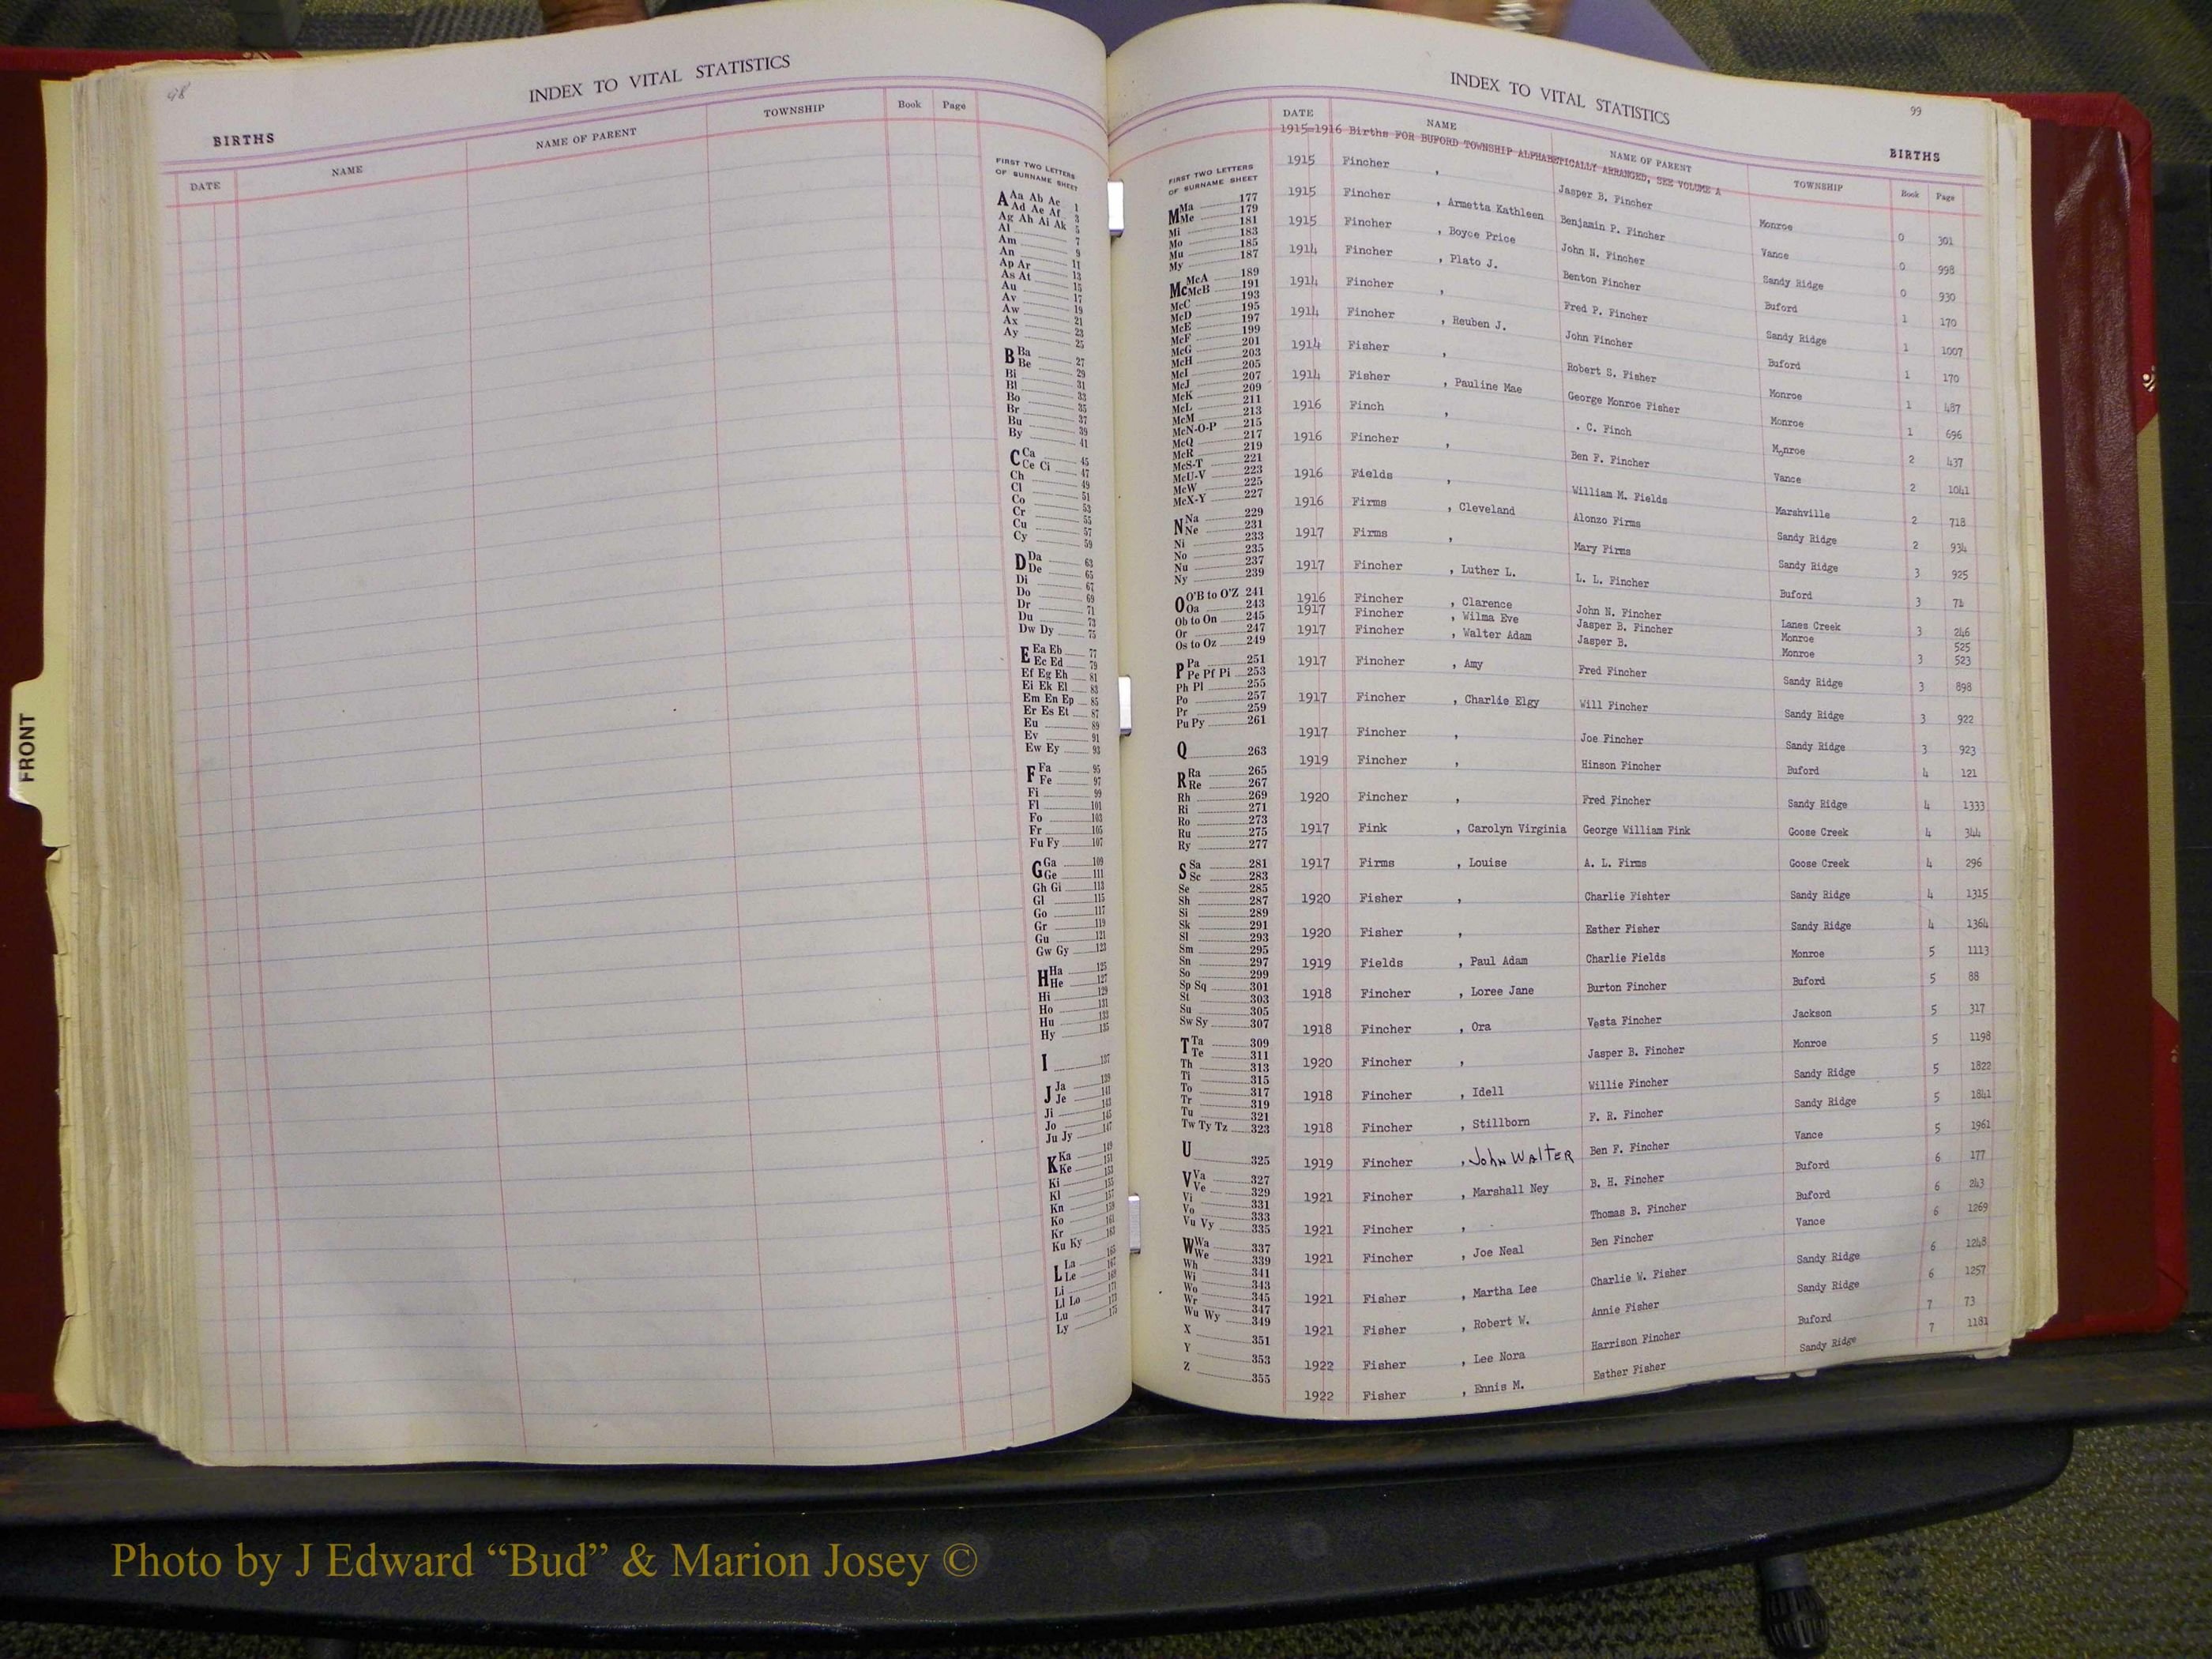 98
INDEX TO VITAL STATISTICS
BIRTHS
DATE NAME NAME OF PARENT TOWNSHIP Book Page
FIRST TWO LETTERS
OF SURNAME SHEET
A Aa Ab Ac 1
Ad Ae Af 3
Ag Ah Ai Ak 5
Al 7
Am 9
An 11
Ap Ar 13
As At 15
Au 17
Av 19
Aw 21
Ax 23
Ay 25
B Ba 27
Be 29
Bi 31
Bl 33
Bo 35
Br 37
Bu 39
By 41
C Ca 45
Ce Ci 47
Ch 49
Cl 51
Co 53
Cr 55
Cu 57
Cy 59
D Da 63
De 65
Di 67
Do 69
Dr 71
Du 73
Dw Dy 75
E Ea Eb 77
Ec Ed 79
Ef Eg Eh 81
Ei Ek El 83
Em En Ep 85
Er Es Et 87
Eu 89
Ev 91
Ew Ey 93
F Fa 95
Fe 97
Fi 99
Fl 101
Fo 103
Fr 105
Fu Fy 107
G Ga 109
Ge 111
Gh Gi 113
Gl 115
Go 117
Gr 119
Gu 121
Gw Gy 123
H Ha 125
He 127
Hi 129
Ho 131
Hu 133
Hy 135
I 137
J Ja 139
Je 141
Ji 143
Jo 145
Ju Jy 147
K Ka 149
Ke 151
Ki 153
Kl 155
Kn 157
Ko 159
Kr 161
Ku Ky 163
L La 165
Le 167
Li 169
Ll Lo 171
Lu 173
Ly 175
INDEX TO VITAL STATISTICS
99
BIRTHS
DATE NAME NAME OF PARENT TOWNSHIP Book Page
FIRST TWO LETTERS
OF SURNAME SHEET
M Ma 177
Me 179
Mi 181
Mo 183
Mu 185
My 187
Mc McA 189
McB 191
McC 193
McD 195
McE 197
McF 199
McG 201
McH 203
McI 205
McJ 207
McK 209
McL 211
McM 213
McN-O-P 215
McQ 217
McR 219
McS-T 221
McU-V 223
McW 225
McX-Y 227
N Na 229
Ne 231
Ni 233
No 235
Nu 237
Ny 239
O O'B to O'Z 241
Oa 243
Ob to On 245
Or 247
Os to Oz 249
P Pa 251
Pe Pf Pi 253
Ph Pl 255
Po 257
Pr 259
Pu Py 261
Q 263
R Ra 265
Re 267
Rh 269
Ri 271
Ro 273
Ru 275
Ry 277
S Sa 281
Sc 283
Se 285
Sh 287
Si 289
Sk 291
Sl 293
Sm 295
Sn 297
So 299
Sp Sq 301
St 303
Su 305
Sw Sy 307
T Ta 309
Te 311
Th 313
Ti 315
To 317
Tr 319
Tu 321
Tw Ty Tz 323
U 325
V Va 327
Ve 329
Vi 331
Vo 333
Vu Vy 335
W Wa 337
We 339
Wh 341
Wi 343
Wo 345
Wr 347
Wu Wy 349
X 351
Y 353
Z 355
1915-1916 Births FOR BUFORD TOWNSHIP ALPHABETICALLY ARRANGED, SEE VOLUME A
1915 Fincher , Jasper B. Fincher Monroe 0 301
1915 Fincher , Armetta Kathleen Benjamin P. Fincher Vance 0 998
1915 Fincher , Boyce Price John N. Fincher Sandy Ridge 0 930
1914 Fincher , Plato J. Benton Fincher Buford 1 170
1914 Fincher , Fred P. Fincher Sandy Ridge 1 1007
1914 Fincher , Reuben J. John Fincher Buford 1 170
1914 Fisher , Robert S. Fisher Monroe 1 487
1914 Fisher , Pauline Mae George Monroe Fisher Monroe 1 696
1916 Finch , . C. Finch Monroe 2 437
1916 Fincher , Ben F. Fincher Vance 2 1041
1916 Fields , William M. Fields Marshville 2 718
1916 Firms , Cleveland Alonzo Firms Sandy Ridge 2 934
1917 Firms , Mary Firms Sandy Ridge 3 925
1917 Fincher , Luther L. L. L. Fincher Buford 3
1916 Fincher , Clarence John N. Fincher Lanes Creek 3 246
1917 Fincher , Wilma Eve Jasper B. Fincher Monroe 525
1917 Fincher , Walter Adam Jasper B. Monroe 3 523
1917 Fincher , Amy Fred Fincher Sandy Ridge 3 898
1917 Fincher , Charlie Elgy Will Fincher Sandy Ridge 3 922
1917 Fincher , Joe Fincher Sandy Ridge 3 923
1919 Fincher , Hinson Fincher Buford 4 121
1920 Fincher , Fred Fincher Sandy Ridge 4 1333
1917 Fink , Carolyn Virginia George William Fink Goose Creek 4 344
1917 Firms , Louise A. L. Firms Goose Creek 4 296
1920 Fisher , Charlie Fishter Sandy Ridge 4 1315
1920 Fisher , Esther Fisher Sandy Ridge 4 1364
1919 Fields , Paul Adam Charlie Fields Monroe 5 1113
1918 Fincher , Loree Jane Burton Fincher Buford 5 88
1918 Fincher , Ora Vesta Fincher Jackson 5 317
1920 Fincher , Jasper B. Fincher Monroe 5 1198
1918 Fincher , Idell Willie Fincher Sandy Ridge 5 1822
1918 Fincher , Stillborn F. R. Fincher Sandy Ridge 5 1841
1919 Fincher , John WALTER Ben F. Fincher Vance 5 1961
1921 Fincher , Marshall Ney B. H. Fincher Buford 6 177
1921 Fincher , Thomas B. Fincher Buford 6 243
1921 Fincher , Joe Neal Ben Fincher Vance 6 1269
1921 Fisher , Martha Lee Charlie W. Fisher Sandy Ridge 6 1248
1921 Fisher , Robert W. Annie Fisher Sandy Ridge 6 1257
1922 Fisher , Lee Nora Harrison Fincher Buford 7 73
1922 Fisher , Ennis M. Esther Fisher Sandy Ridge 7 1181
FRONT
Photo by J Edward “Bud” & Marion Josey ©